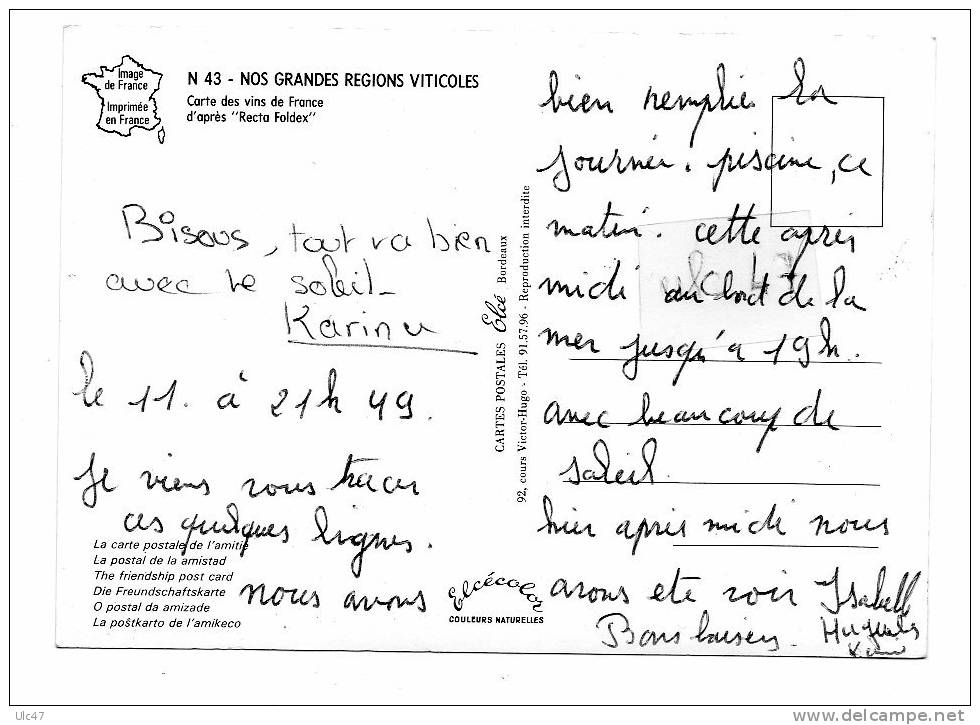 Image
de France
Imprimée
en France
N 43 - NOS GRANDES REGIONS VITICOLES
Carte des vins de France
d'après "Recta Foldex"
Bisous, tout va bien
avec le soleil_
Karine
le 11. à 21h 49.
Je viens vous tracer
ces quelques lignes.
nous avons
La carte postale de l'amitié
La postal de la amistad
The friendship post card
Die Freundschaftskarte
O postal da amizade
La poŝtkarto de l'amikeco
Elcécolor
COULEURS NATURELLES
CARTES POSTALES Elcé Bordeaux
92, cours Victor-Hugo - Tél. 91.57.96 - Reproduction interdite
bien remplie la
journée. piscine, ce
matin. cette après
midi au bord de la
mer jusqu'à 19h.
avec beaucoup de
soleil.
hier après midi nous
avons ete voir
Bons baisers
Isabell
Hugues
ulc47
Ulc47
www.delcampe.net